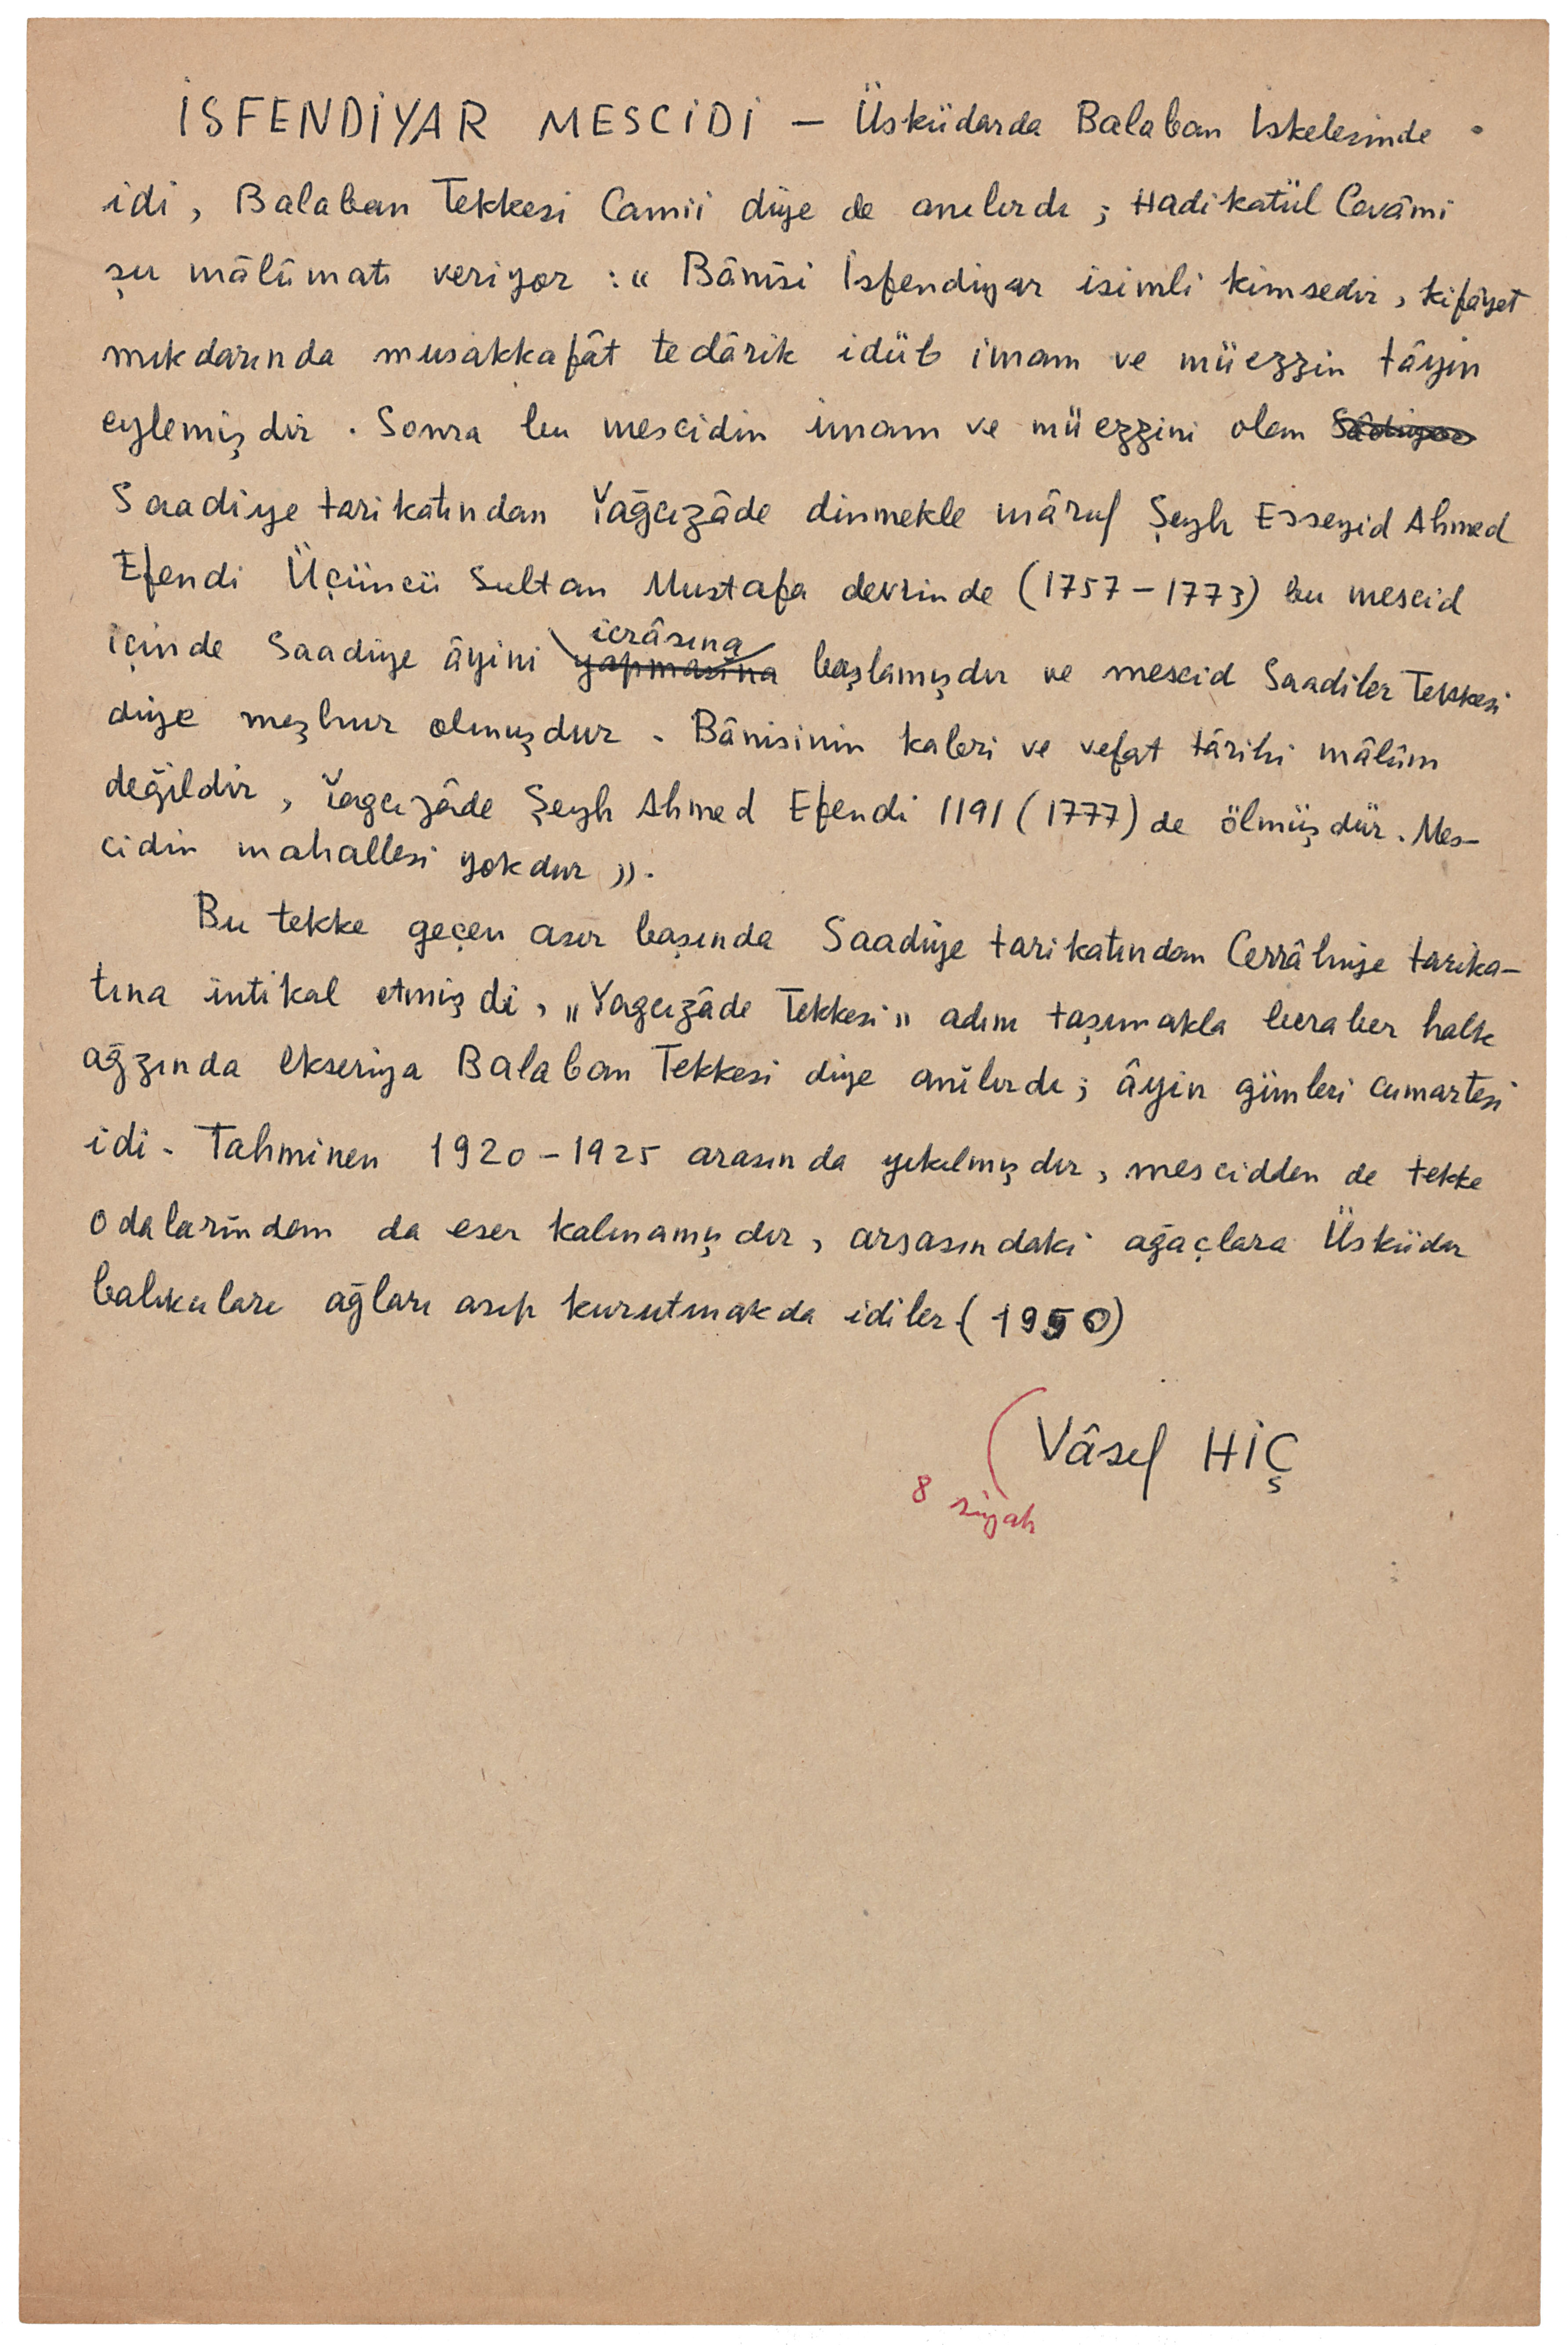 İSFENDİYAR MESCİDİ — Üsküdarda Balaban İskelesinde
idi, Balaban Tekkesi Camii diye de anılırdı; Hadikatül Cevâmi
şu mâlûmatı veriyor : « Bânîsi İsfendiyar isimli kimsedir, kifâyet
mıkdarında musakkafât tedârik idüb imam ve müezzin tâyin
eylemişdir. Sonra bu mescidin imam ve müezzini olan
Saadiye tarikatından Yağcızâde dinmekle mâruf Şeyh Esseyid Ahmed
Efendi Üçüncü Sultan Mustafa devrinde (1757-1773) bu mescid
içinde Saadiye âyini yapmasına icrâsına başlamışdır ve mescid Saadiler Tekkesi
diye meşhur olmuşdur. Bânisinin kabri ve vefat târihi mâlûm
değildir, Yağcızâde Şeyh Ahmed Efendi 1191 (1777) de ölmüşdür. Mes-
cidin mahallesi yokdur ».
Bu tekke geçen asır başında Saadiye tarikatından Cerrâhiye tarika-
tına intikal etmişdi, "Yağcızâde Tekkesi" adını taşımakla beraber halk
ağzında ekseriya Balaban Tekkesi diye anılırdı; âyin günleri cumartesi
idi. Tahminen 1920-1925 arasında yıkılmışdır, mescidden de tekke
odalarından da eser kalmamışdır, arsasındaki ağaçlara Üsküdar
balıkcıları ağları asıp kurutmakda idiler (1950)
Vâsıf HİÇ
8 siyah